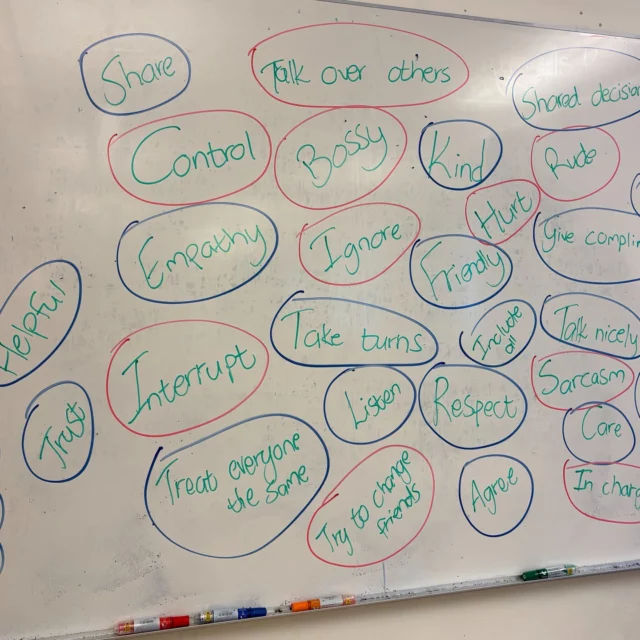 Share
Talk over others
Shared decision
Control
Bossy
Kind
Rude
Hurt
Empathy
Ignore
Friendly
Give compli
Helpful
Take turns
Include
all
Talk nicely
Interrupt
Listen
Respect
Sarcasm
Trust
Care
Treat everyone
the same
Try to change
friends
Agree
In charg